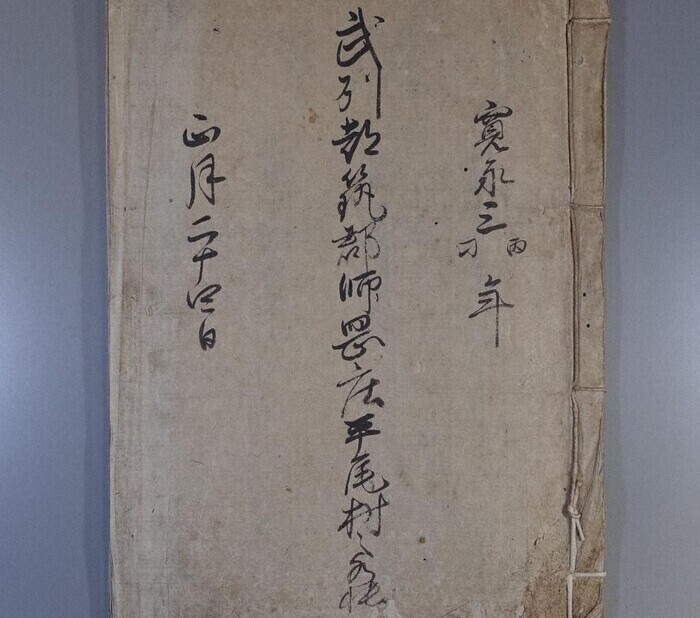 寛永三丙刁年
武州都筑郡師罡庄平尾村之水帳
正月二十四日